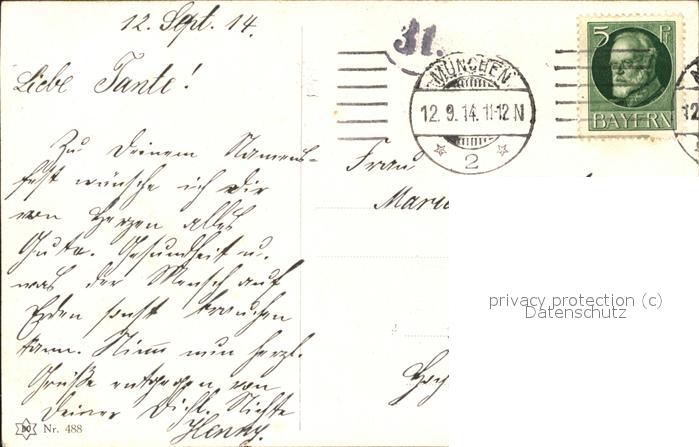 12. Sept. 14.
31.
MÜNCHEN
12.9.14.11-12N
2
5 Pf
BAYERN
12
Liebe Tante!
Zu Deinem Namens-
fest wünsche ich Dir
von Herzen alles
Gute. Gesundheit u.
was der Mensch auf
Erden sonst brauchen
kann. Nimm nun herzl.
Grüße entgegen von
Deiner Dichl. Nichte
Henny.
Frau
Marie
privacy protection (c)
Datenschutz
Nr. 488